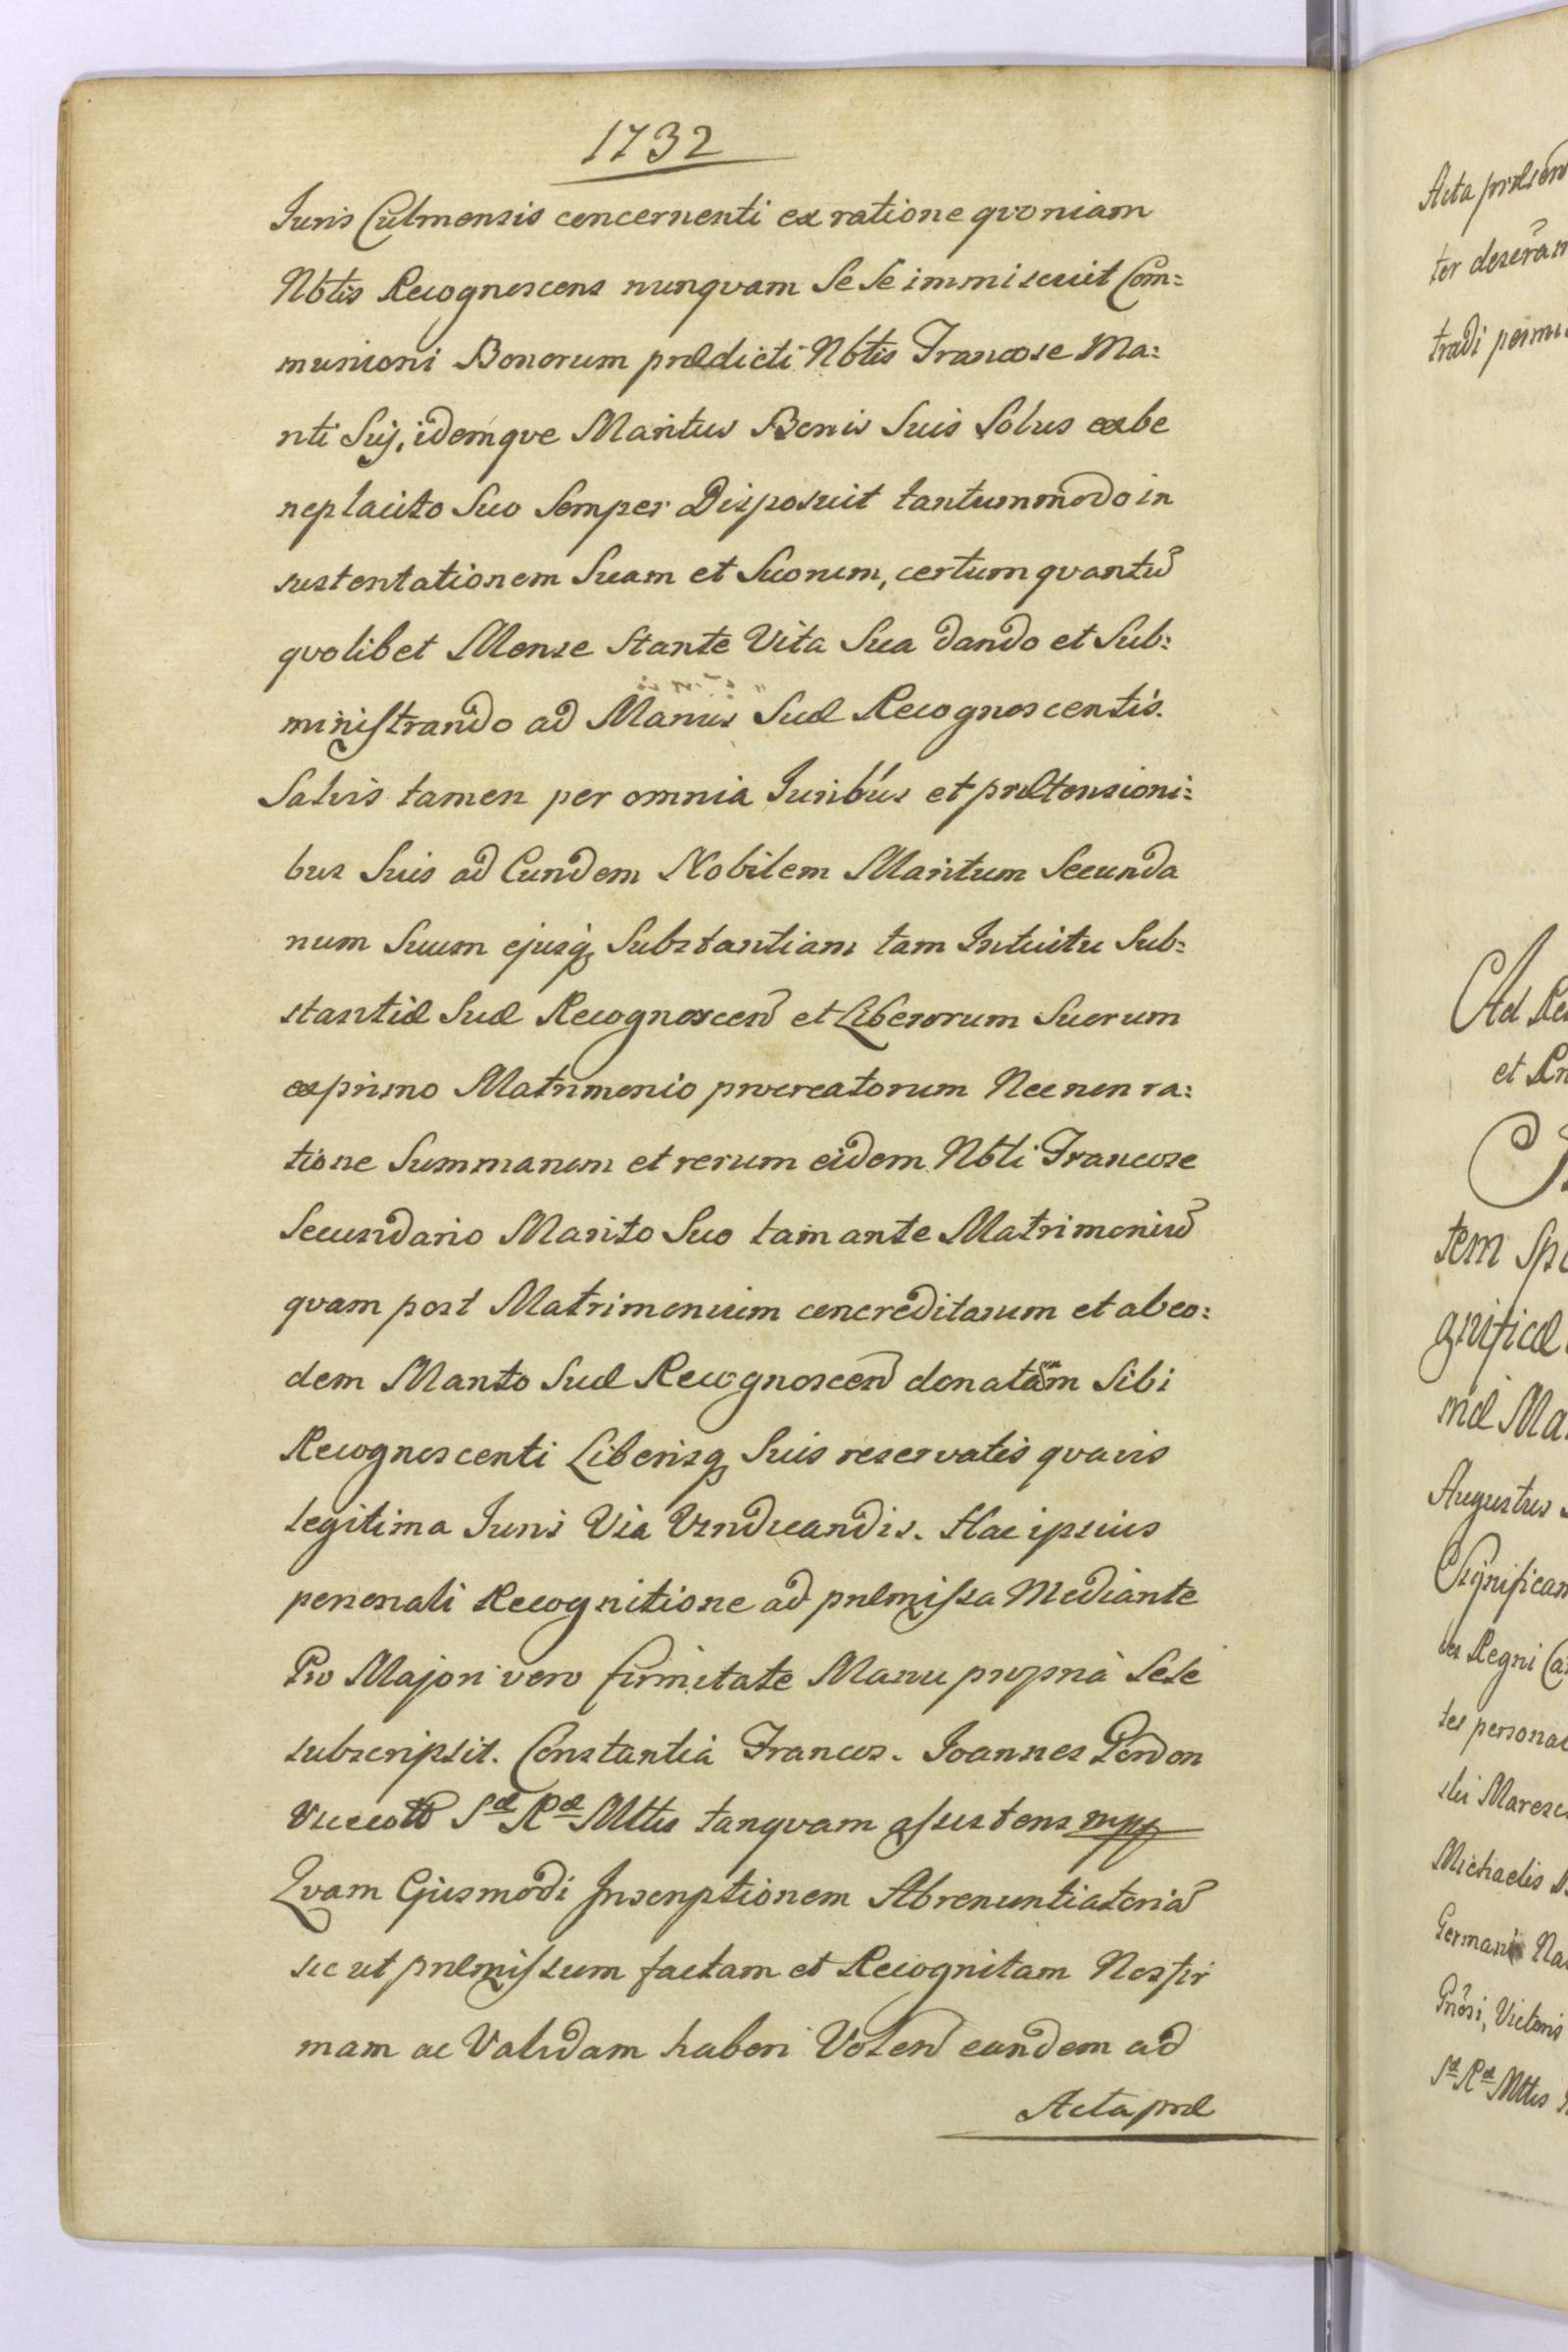 1732
Iuris Culmensis concernenti ex ratione qvoniam
Nbtis Recognoscens nunqvam Se Se immiscuit Com=
munioni Bonorum prædicti Nbtis Francose Ma=
riti Sij, idemqve Maritus Bonis Suis Solus exbe
neplacito Suo Semper Disposuit tantummodo in
sustentationem Suam et Suorum, certum qvantũ
qvolibet Mense Stante Vita Sua dando et Sub=
ministrando ad Manus Suæ Recognoscentis.
Salvis tamen per omnia Iuribus et prætensioni=
bus Suis ad Eundem Nobilem Maritum Secunda
num Suum ejusq Substantiam tam Intuitu Sub=
stantiæ Suæ Recognoscen et Liberorum Suorum
ex primo Matrimonio procreatorum Nec non ra=
tione Summarum et rerum eidem Nbli Francose
Secundario Marito Suo tam ante Matrimoniũ
qvam post Matrimonium concreditarum et ab eo=
dem Marito Suæ Recognoscen donatam Sibi
Recognoscenti Liberisq Suis reservatis qvavis
legitima Iuris Via Vindicandis. Hac ipsius
personali Recognitione ad præmissa Mediante
Pro Majori vero firmitate Manu propria Sese
subscripsit. Constantia Francos. Ioannes Gordon
S^æ R^æ Mttis tanqvam assistens mpp
Qvam Ejusmodi Inscriptionem Abrenuntiatoriã
sic ut præmissum factam et Recognitam Nos fir
mam ac Validam haberi Volen eandem ad
Acta præ
Acta præsen
ter deserãn
tradi
Ad Re
et Pr
tem Spe
gnificæ
mæ Ma
Augustus
Significam
tes Regni Ca
tes personal
Maresc
Michaelis
Germani Na
Gnõsi, Victoris
S^æ R^æ Mttis